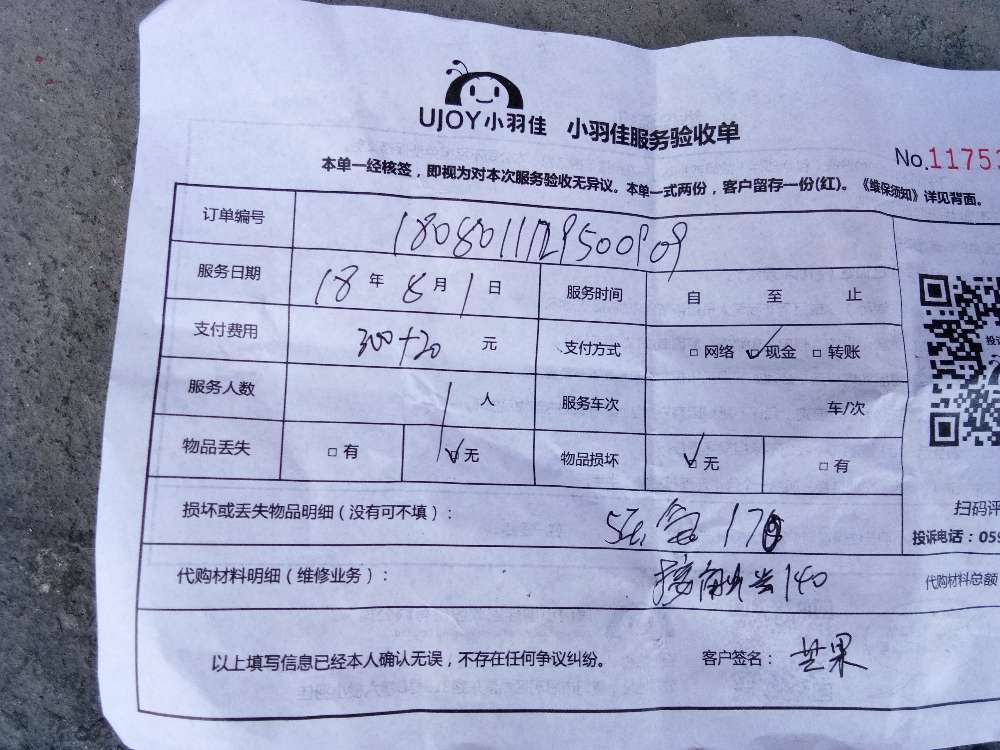 UJOY小羽佳 小羽佳服务验收单
No.11753
本单一经核签，即视为对本次服务验收无异议。本单一式两份，客户留存一份(红)。《维保须知》详见背面。
订单编号
服务日期 18 年 8 月 1 日 服务时间 自 至 止
支付费用 300+20 元 支付方式 □ 网络 ☑ 现金 □ 转账
服务人数 1 人 服务车次 车/次
物品丢失 □ 有 ☑ 无 物品损坏 ☑ 无 □ 有
损坏或丢失物品明细（没有可不填）：
扫码评
投诉电话：059
代购材料明细（维修业务）： 140
代购材料总额
以上填写信息已经本人确认无误，不存在任何争议纠纷。 客户签名： 芒果